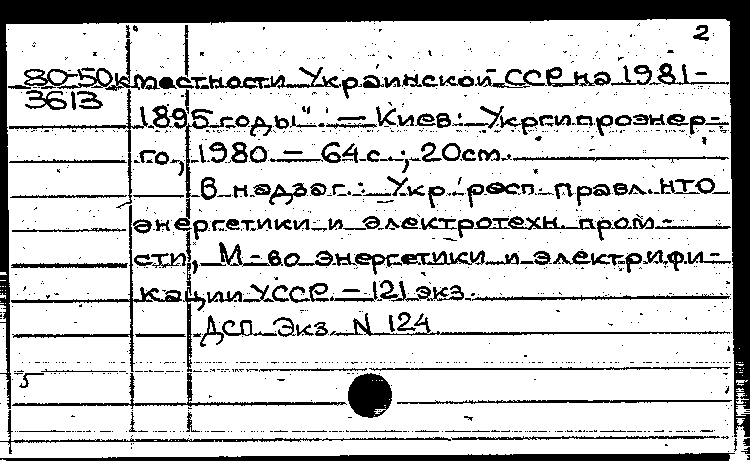 2
80-50к тостности Украинской ССР на 1981-
3613
1895 годы". — Киев: Укргипроэнер-
го, 1980. — 64 с.; 20 см.
В надзаг.: Укр. респ. правл. НТО
энергетики и электротехн. пром-
сти, М-во энергетики и электрифи-
кации УССР. — 121 экз.
Дсп. Экз. N 124
5